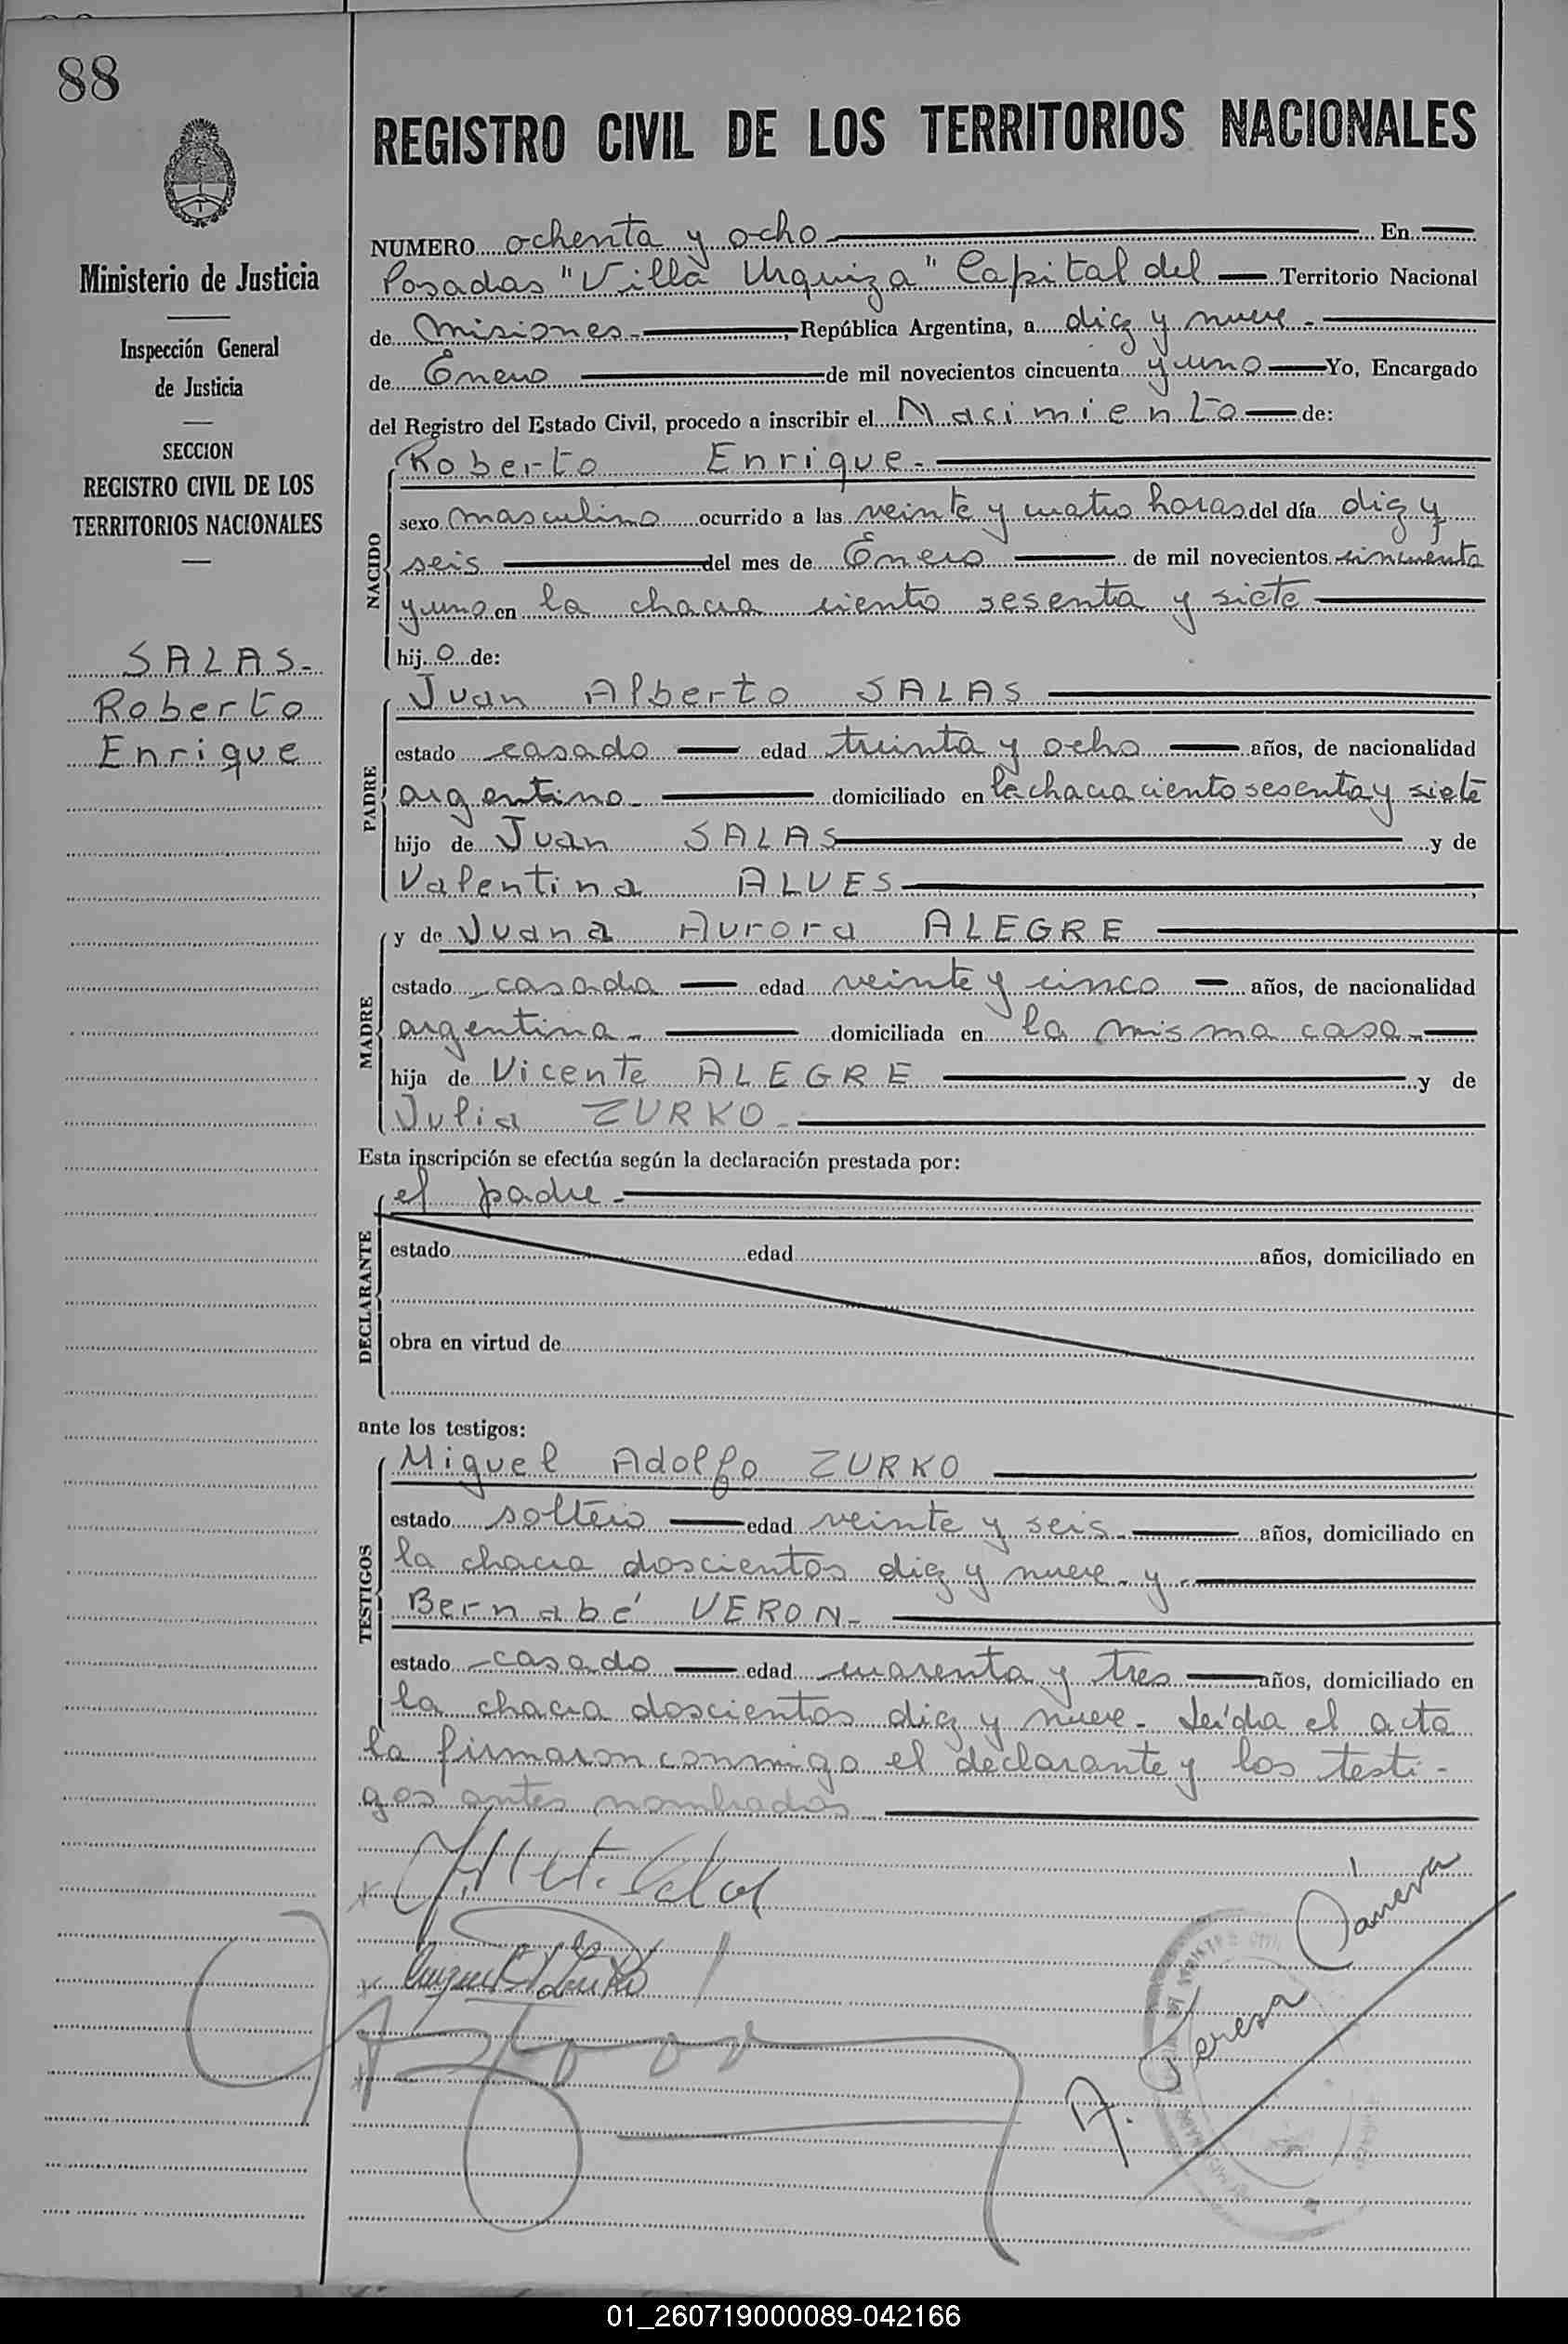 88
Ministerio de Justicia
Inspección General
de Justicia
SECCION
REGISTRO CIVIL DE LOS
TERRITORIOS NACIONALES
SALAS-
Roberto
Enrique
REGISTRO CIVIL DE LOS TERRITORIOS NACIONALES
NUMERO ochenta y ocho En
Posadas "Villa Urquiza" Capital del Territorio Nacional
de Misiones.- , República Argentina, a diez y nueve.-
de Enero de mil novecientos cincuenta y uno Yo, Encargado
del Registro del Estado Civil, procedo a inscribir el Nacimiento de:
NACIDO
Roberto Enrique.-
sexo masculino ocurrido a las veinte y cuatro horas del día diez y
seis del mes de Enero de mil novecientos cincuenta
y uno en la chacra ciento sesenta y siete
hij o de:
PADRE
Juan Alberto SALAS
estado casado edad treinta y ocho años, de nacionalidad
argentino.- domiciliado en la chacra ciento sesenta y siete
hijo de Juan SALAS y de
Valentina ALVES
MADRE
y de Juana Aurora ALEGRE
estado casada edad veinte y cinco años, de nacionalidad
argentina.- domiciliada en la misma casa.-
hija de Vicente ALEGRE y de
Julia ZURKO.-
Esta inscripción se efectúa según la declaración prestada por:
DECLARANTE
el padre.-
estado edad años, domiciliado en
obra en virtud de
ante los testigos:
TESTIGOS
Miguel Adolfo ZURKO
estado soltero edad veinte y seis.- años, domiciliado en
la chacra doscientos diez y nueve.- y.-
Bernabé VERON.-
estado casado edad cuarenta y tres años, domiciliado en
la chacra doscientos diez y nueve.- Leída el acta
la firmaron conmigo el declarante y los testi-
gos antes nombrados
A. Teresa
01_260719000089-042166